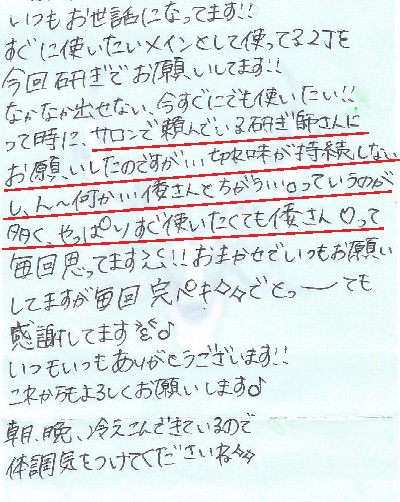 いつもお世話になってます!!
すぐに使いたいメインとして使ってる2丁を
今回研ぎでお願いしてます!!
なかなか出せない、今すぐにでも使いたい!!
って時に、サロンで頼んでいる研ぎ師さんに
お願いしたのですが…切れ味が持続しない
し、ん〜何か…倭さんとちがう…。っていうのが
多く、やっぱりすぐ使いたくても倭さん♡って
毎回思ってます!!おまかせでいつもお願い
してますが毎回完ペキでとっーても
感謝してます♪
いつもいつもありがとうございます!!
これからもよろしくお願いします♪
朝、晩、冷えこんできているので
体調気をつけてくださいね